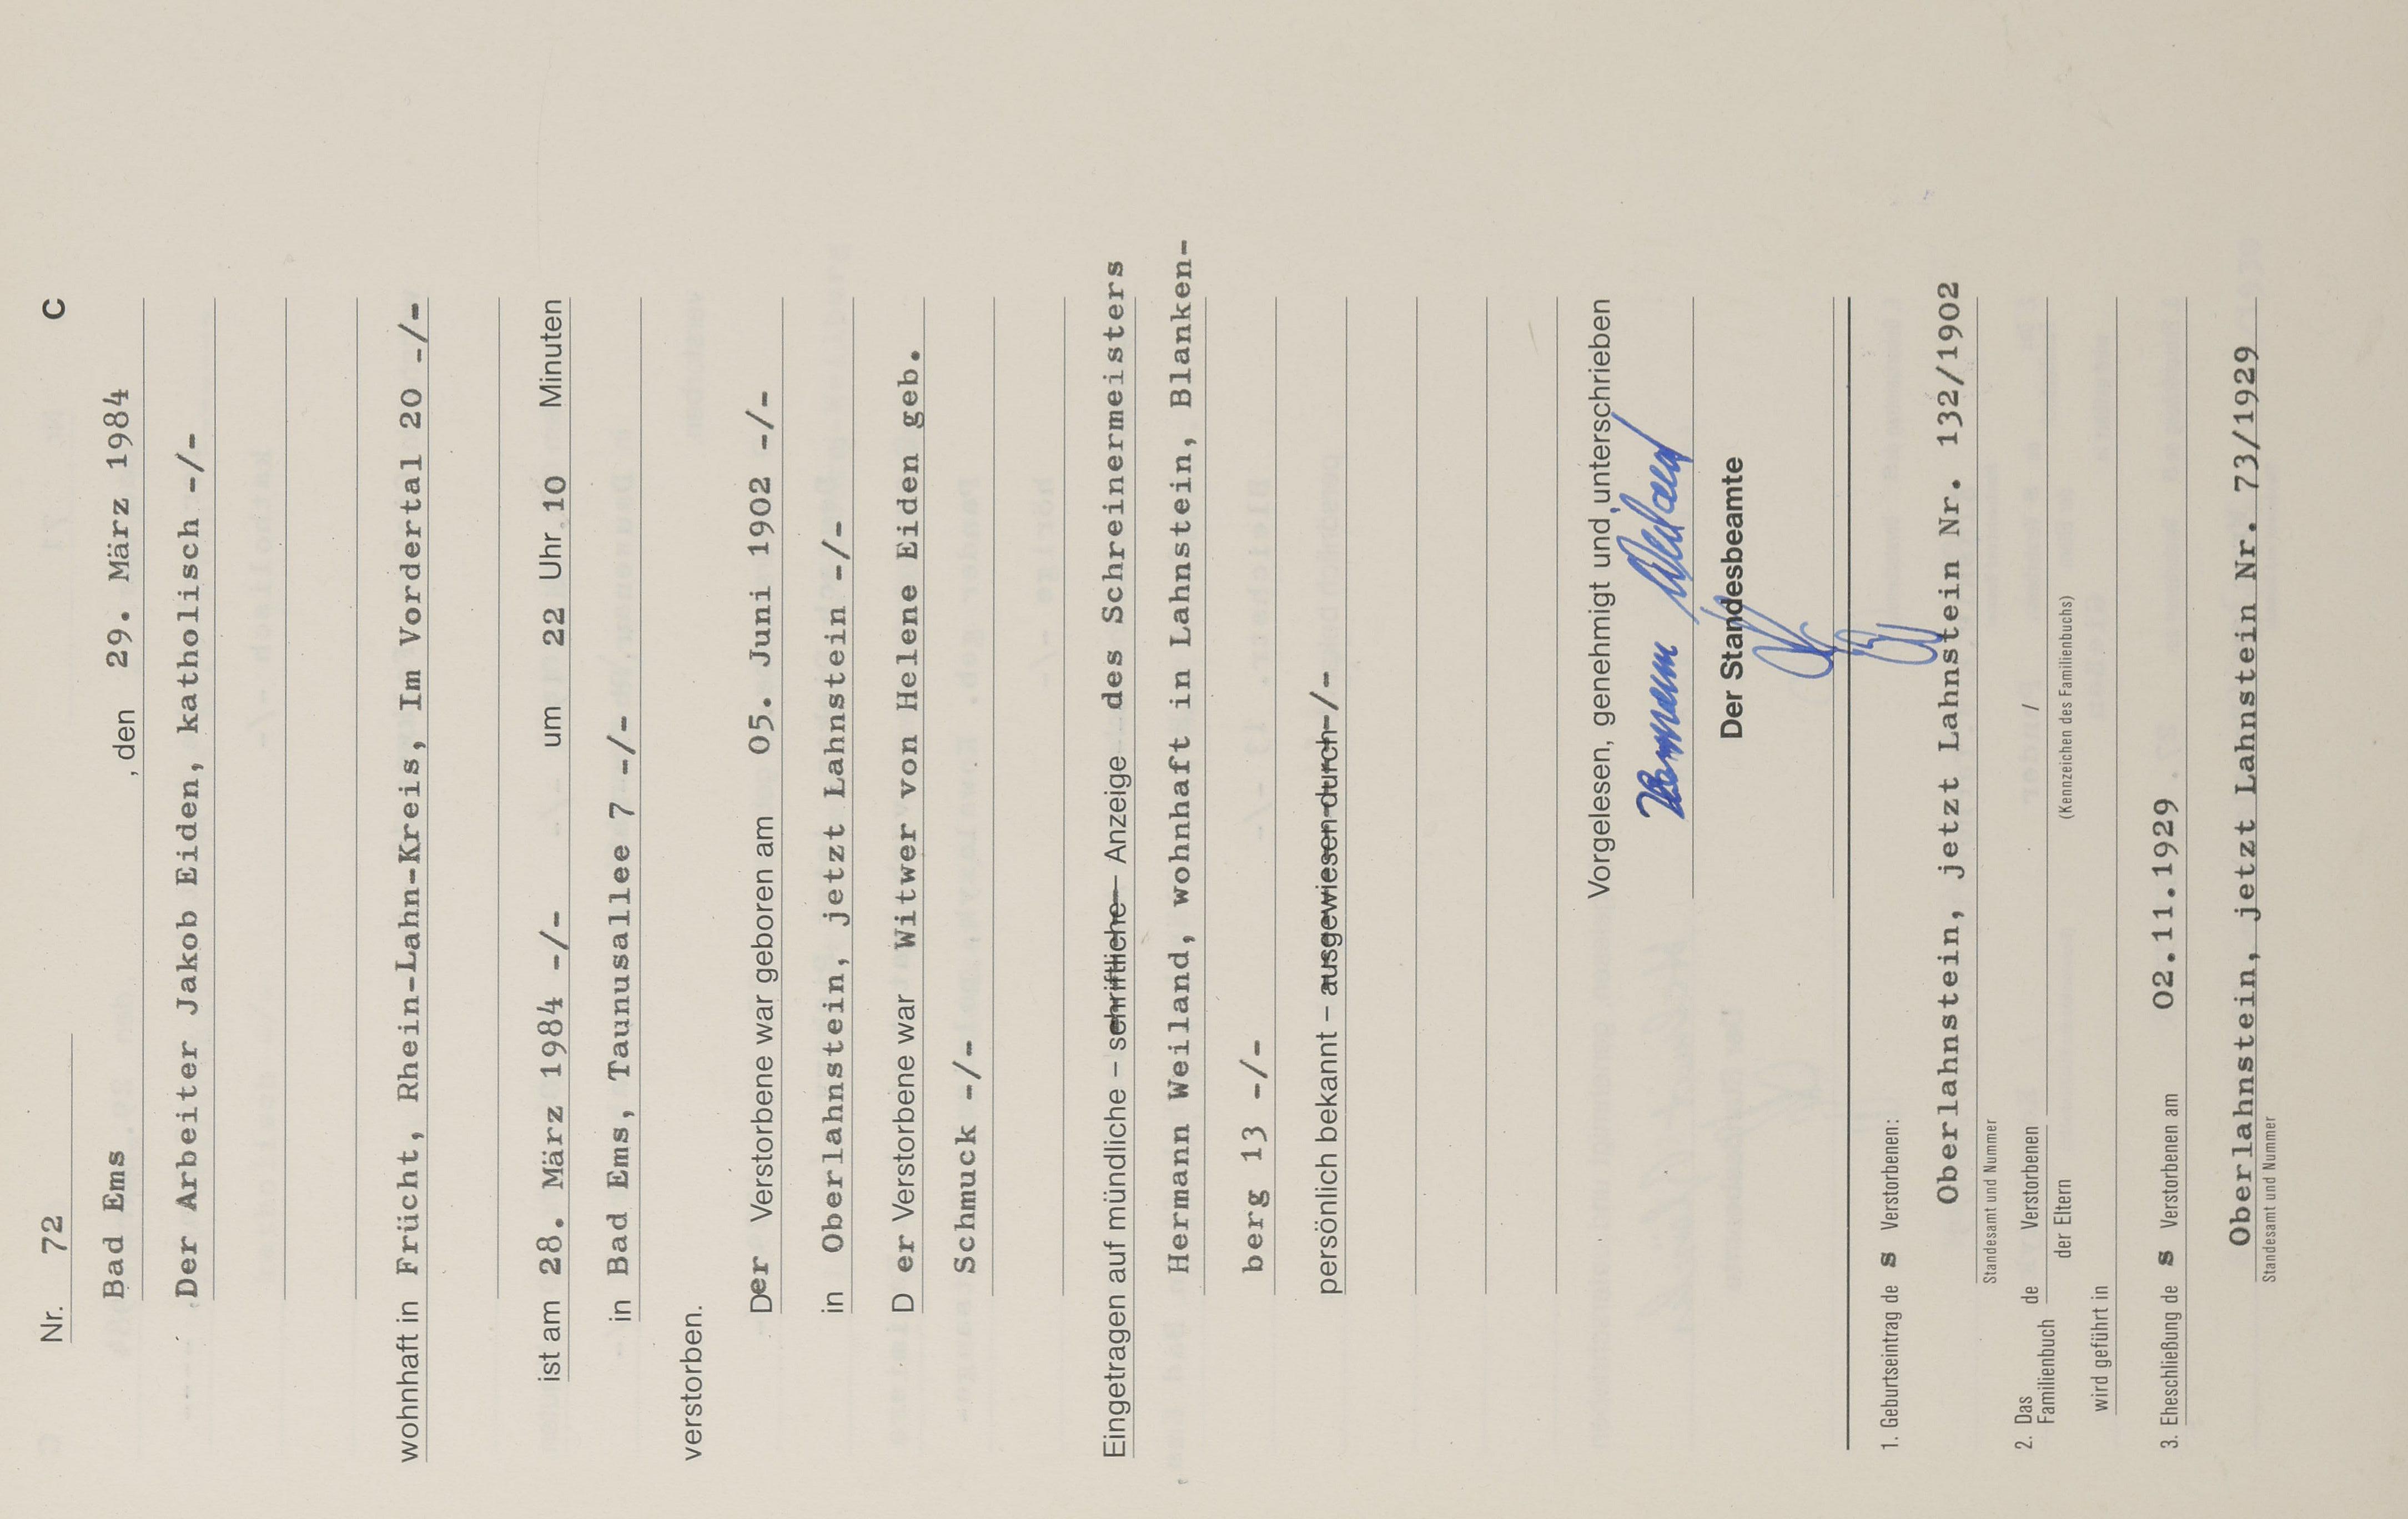 Nr. 72 C
Bad Ems , den 29. März 1984
Der Arbeiter Jakob Eiden, katholisch -/-
wohnhaft in Frücht, Rhein-Lahn-Kreis, Im Vordertal 20 -/-
ist am 28. März 1984 -/- um 22 Uhr 10 Minuten
in Bad Ems, Taunusallee 7 -/-
verstorben.
Der Verstorbene war geboren am 05. Juni 1902 -/-
in Oberlahnstein, jetzt Lahnstein -/-
D er Verstorbene war Witwer von Helene Eiden geb.
Schmuck -/-
Eingetragen auf mündliche – schriftliche – Anzeige des Schreinermeisters
Hermann Weiland, wohnhaft in Lahnstein, Blanken-
berg 13 -/-
persönlich bekannt – ausgewiesen durch -/-
Vorgelesen, genehmigt und unterschrieben
Hermann Weiland
Der Standesbeamte
1. Geburtseintrag de s Verstorbenen:
Oberlahnstein, jetzt Lahnstein Nr. 132/1902
Standesamt und Nummer
2. Das Familienbuch de Verstorbenen /
der Eltern
(Kennzeichen des Familienbuchs)
wird geführt in
3. Eheschließung de s Verstorbenen am 02.11.1929
Oberlahnstein, jetzt Lahnstein Nr. 73/1929
Standesamt und Nummer